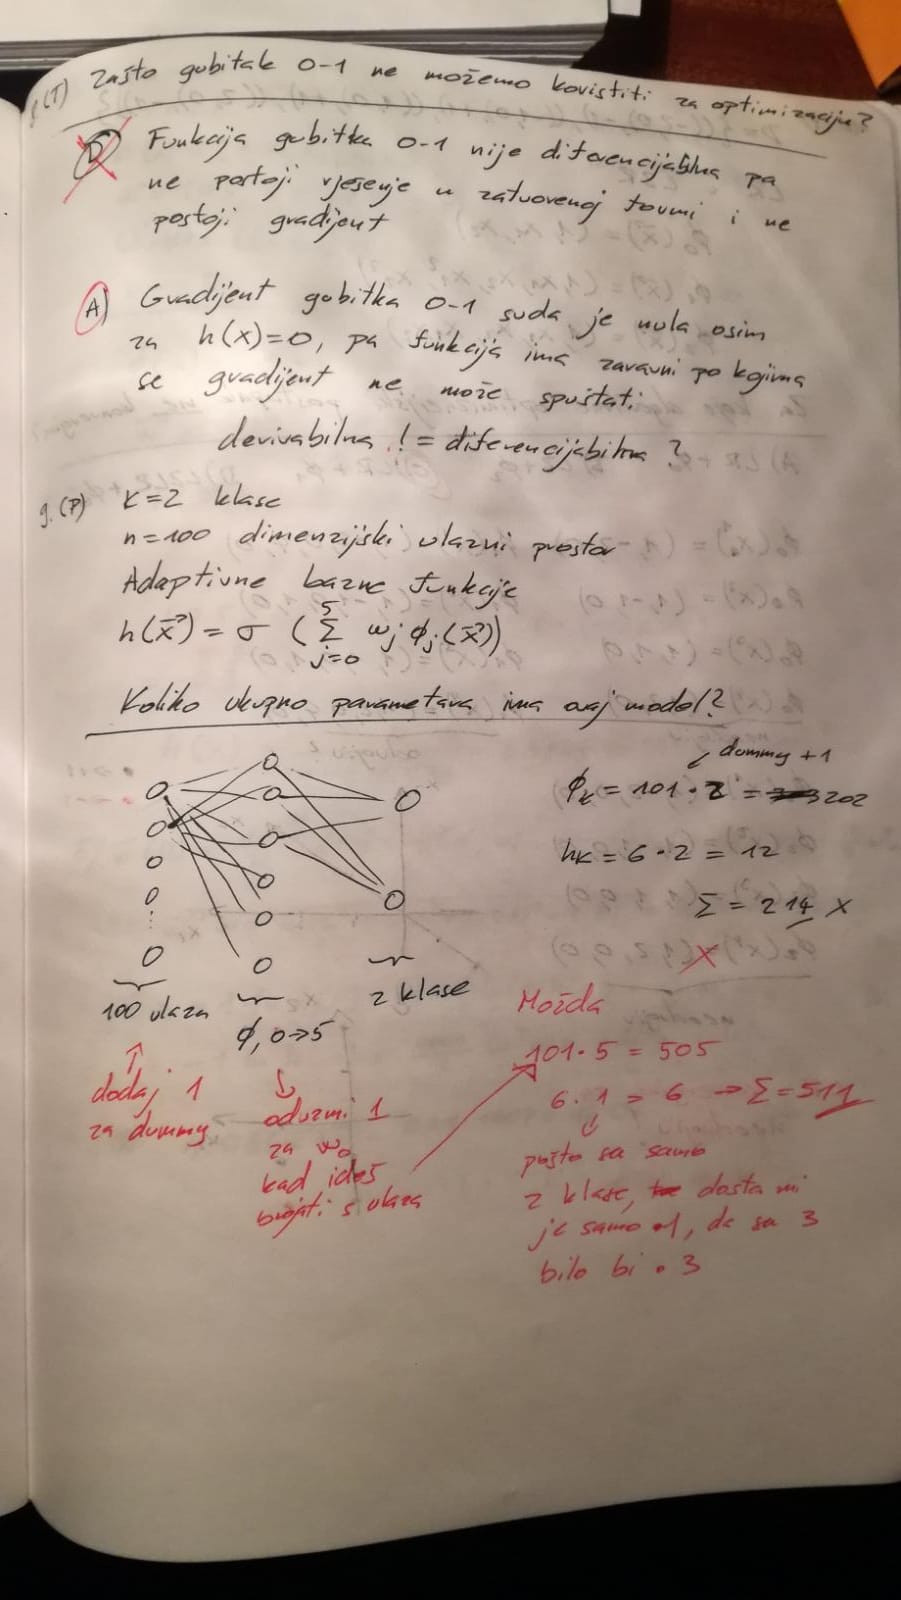 8.(T) Zašto gubitak 0-1 ne možemo koristiti za optimizaciju?
D) Funkcija gubitka 0-1 nije diferencijabilna pa
ne postoji rješenje u zatvorenoj formi i ne
postoji gradijent
A) Gradijent gubitka 0-1 svuda je nula osim
za h(x)=0, pa funkcija ima zaravni po kojima
se gradijent ne može spuštati.
derivabilna != diferencijabilna?
9.(P) K=2 klase
n=100 dimenzijski ulazni prostor
Adaptivne bazne funkcije
h(x⃗) = σ (∑ⱼ₌₀⁵ wⱼ ϕⱼ(x⃗))
Koliko ukupno parametara ima ovaj model?
dummy +1
ϕₖ = 101 · 2 = 202
hₖ = 6 · 2 = 12
Σ = 214 X
X
100 ulaza
ϕ, 0→5
2 klase
dodaj 1
za dummy
oduzmi 1
za w₀
kad ideš
brojati s ulaza
Možda
101·5 = 505
6·1 = 6 → Σ=511
pošto su samo
2 klase, dosta mi
je samo 1, da su 3
bilo bi · 3